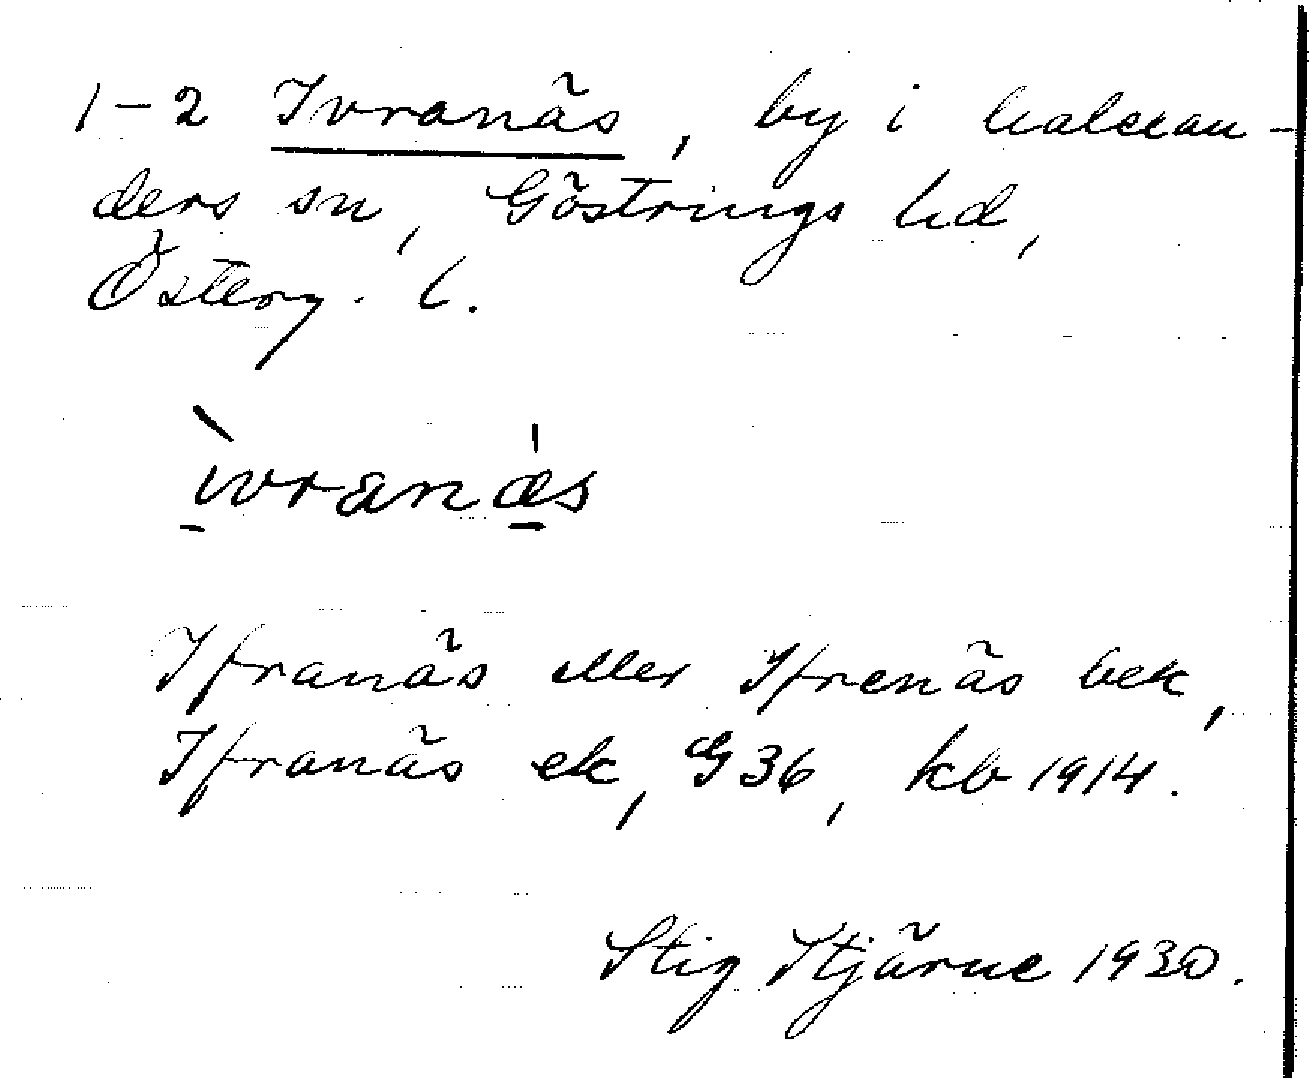 1-2 Ivranäs, by i Walean-
ders sn, Göstrings hd,
Österg. l.
ìvranǽs
Ifranäs eller Ifrenäs bek,
Ifranäs ek, G 36, kb 1914.
Stig Stjärne 1930.